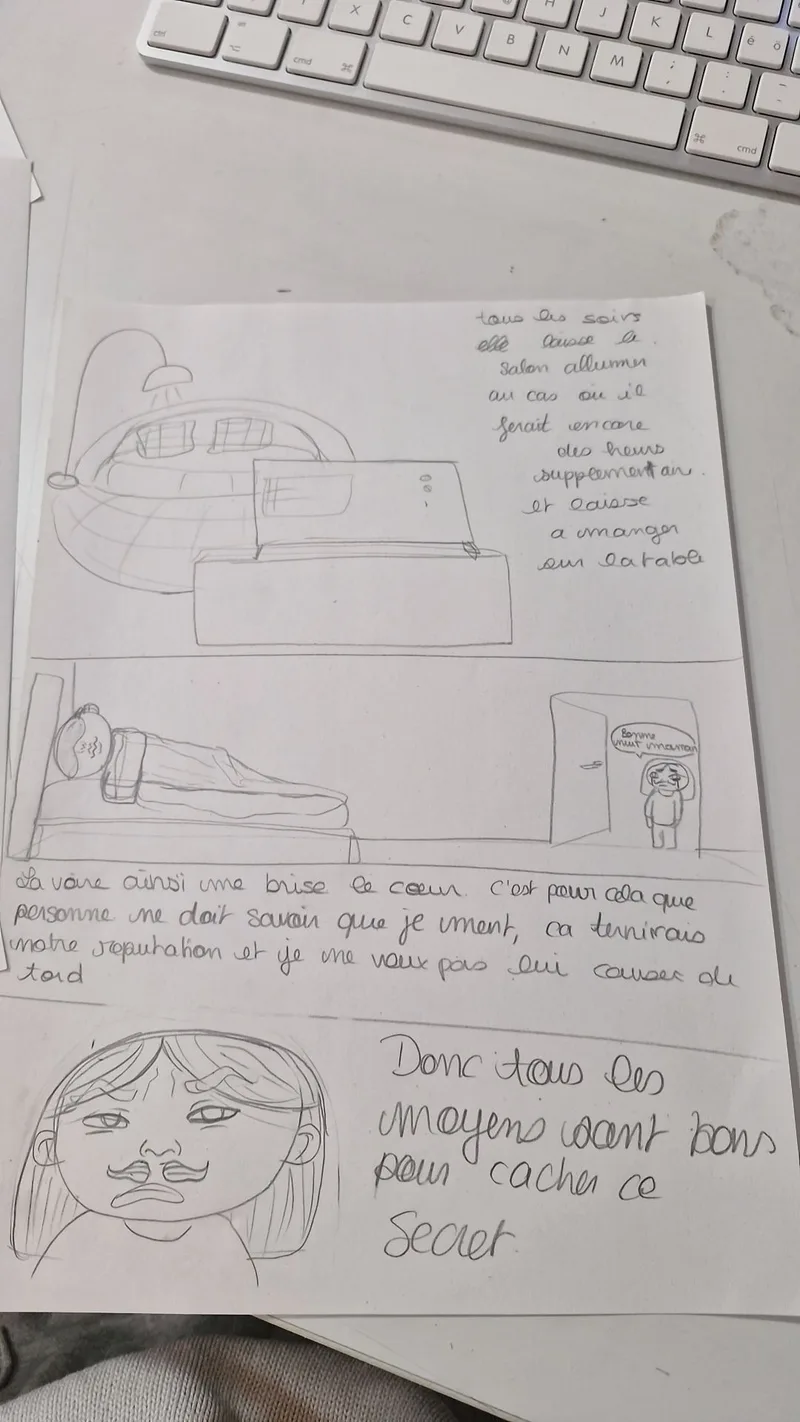 ctrl
cmd
X
C
V
B
N
M
H
J
K
L
é
ö
;
:
-
cmd
tous les soirs
elle laisse le
salon allumer
au cas ou il
ferait encore
des heurs
supplementair.
et laisse
a manger
sur la table
Bonne
nuit maman
La voire ainsi me brise le cœur. C'est pour cela que
personne ne doit savoir que je ment, ca ternirais
notre reputation et je ne veux pas lui causer de
tord
Donc tous les
moyens sont bons
pour cacher ce
Secret.